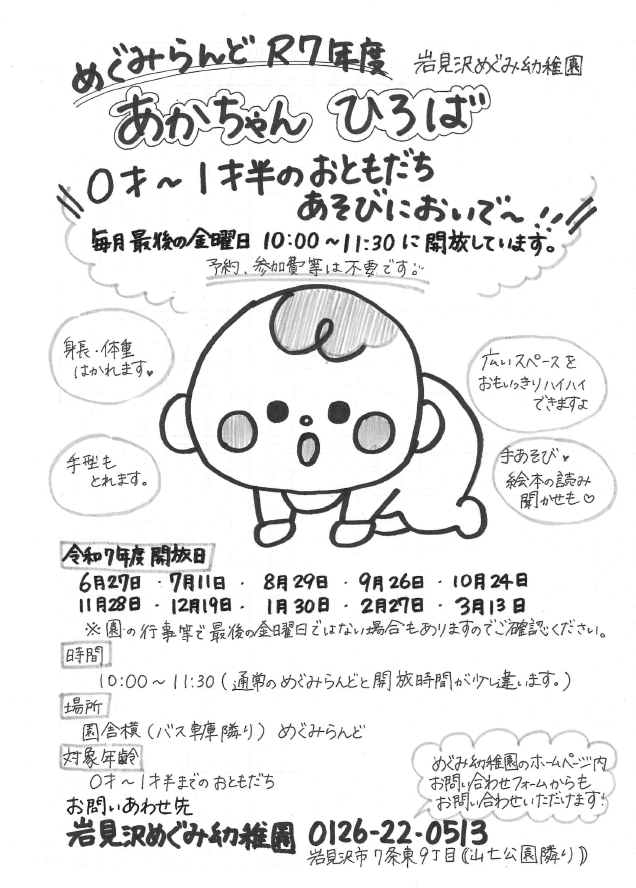 めぐみらんど R7年度 岩見沢めぐみ幼稚園
あかちゃん ひろば
0才～1才半のおともだち
あそびにおいで～!!
毎月最後の金曜日 10:00～11:30に開放しています。
予約、参加費等は不要です
身長・体重
はかれます♥
広いスペースを
おもいっきりハイハイ
できますよ
手型も
とれます。
手あそび♥
絵本の読み
聞かせも♡
令和7年度開放日
6月27日・7月11日・8月29日・9月26日・10月24日
11月28日・12月19日・1月30日・2月27日・3月13日
※園の行事等で最後の金曜日ではない場合もありますのでご確認ください。
時間
10:00～11:30(通常のめぐみらんどと開放時間が少し違います。)
場所
園舎横(バス車庫隣り)めぐみらんど
対象年齢
0才～1才半までのおともだち
めぐみ幼稚園のホームページ内
お問い合わせフォームからも
お問い合わせいただけます!
お問いあわせ先
岩見沢めぐみ幼稚園 0126-22-0513
岩見沢市7条東9丁目《山七公園隣り》